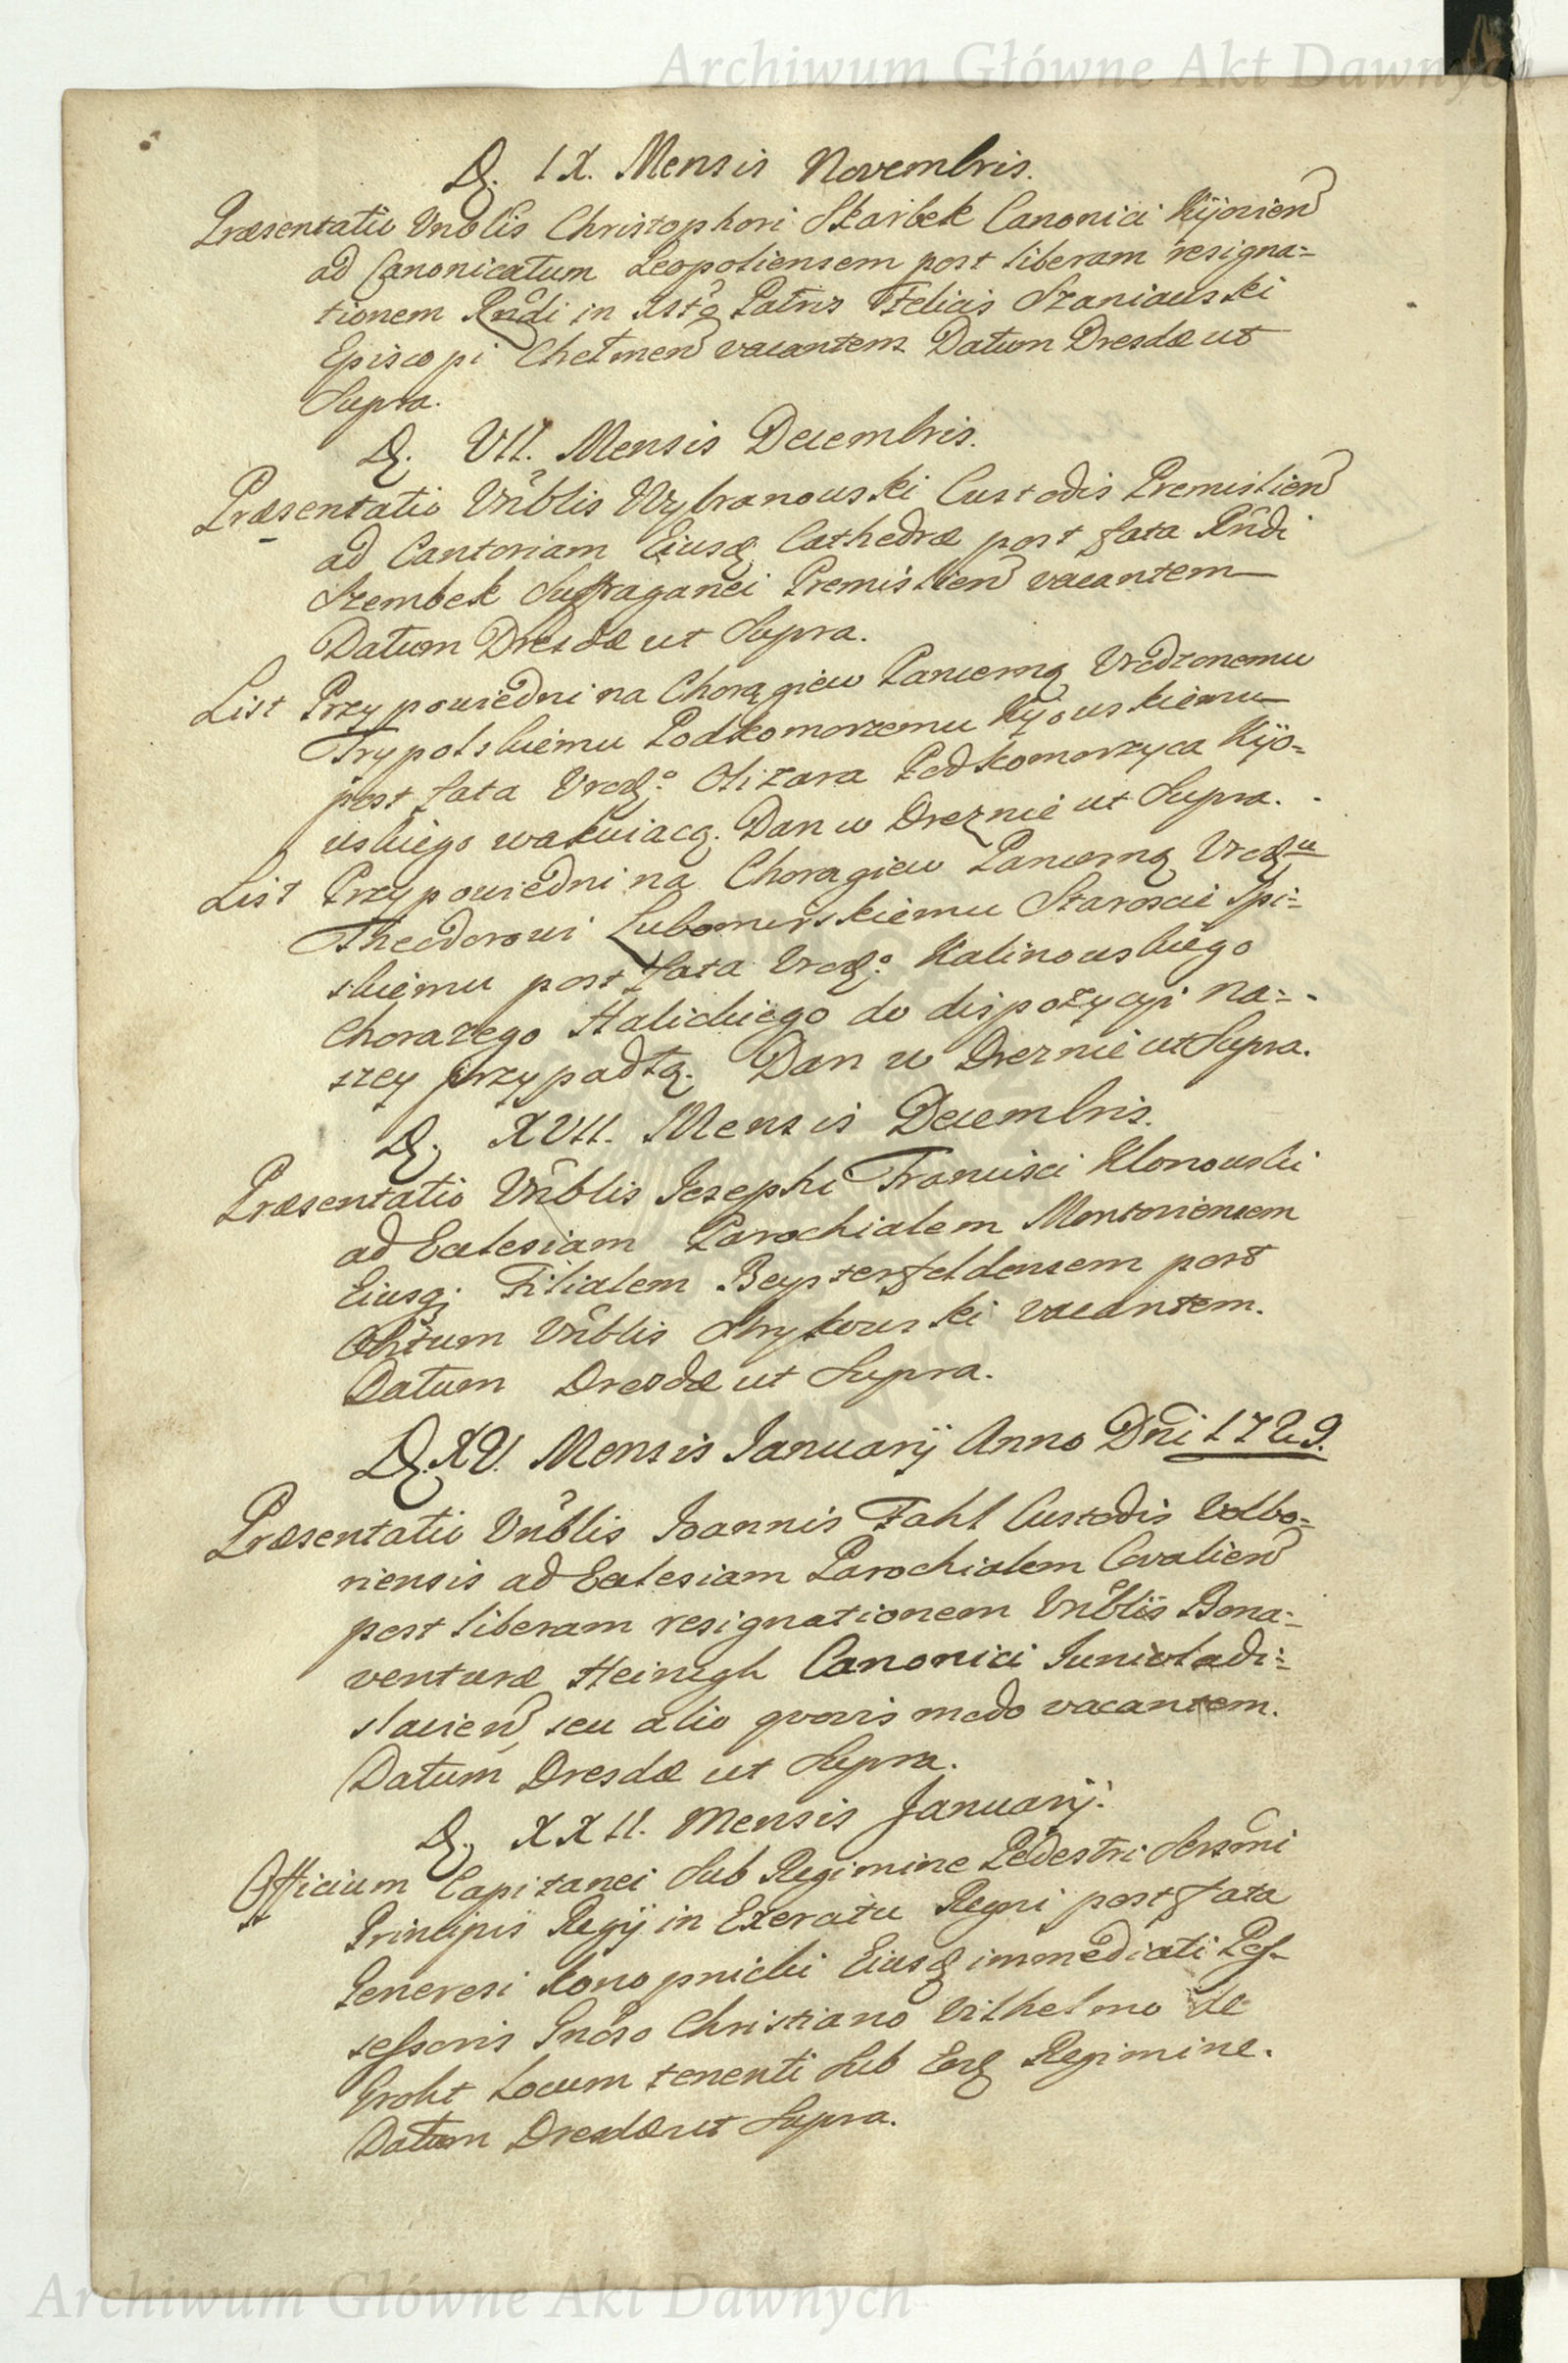 Archiwum Główne Akt Dawnych
D. IX. Mensis Novembris.
Præsentatio Vnblis Christophori Skarbek Canonici Kijovien
ad Canonicatum Leopoliensem post liberam resigna=
tionem Rndi in Xsto Patris Felicis Szaniawski
Episcopi Chełmen vacantem Datum Dresdæ ut
Supra.
D. VII. Mensis Decembris.
Præsentatio Vnblis Wybranowski Custodis Premislien
ad Cantoriam Eiusd Cathedræ post fata Rndi
Szembek Suffraganei Premislien vacantem
Datum Dresdæ ut Supra.
List Przypowiedni na Chorągiew Pancerną Vrodzonemu
Trypolskiemu Podkomorzemu Kijowskiemu
post fata Vrodz:o Olizara Podkomorzyca Kijo=
wskiego wakuiacą. Dan w Dreznie ut Supra.
List Przypowiedni na Choragiew Pancerną Vrodzu
Theodorowi Lubomirskiemu Staroscie Spi=
skiemu post fata Vrodz:o Kalinowskiego
Chorazego Halickiego do dispozycyi na=
szey przypadłą. Dan w Dreznie ut Supra.
D. XVII. Mensis Decembris.
Præsentatio Vnblis Iosephi Francisci Klonowski
ad Ecclesiam Parochialem Montoviensem
Eiusq; Filialem Beystersfeldensem post
Obitum Vnblis Strykowski vacantem.
Datum Dresdæ ut Supra.
D. XV. Mensis Ianuarij Anno Dni 1729.
Præsentatio Vnblis Ioannis Fahl Custodis Volbo=
riensis ad Ecclesiam Parochialem Covalien
post liberam resignationem Vnblis Bona=
venturæ Heinigh Canonici Iuniwladi=
slavien, seu alio qvovis modo vacantem.
Datum Dresdæ ut Supra.
D. XXII. Mensis Januarij.
Officium Capitanei Sub Regimine Pedestri Sersmi
Principis Regij in Exercitu Regni post fata
Generosi Konopnicki Eiusd immediati Pos=
sessoris Gnoso Christiano Vilhelmo de
Groht Locum tenenti Sub Eod Regimine.
Datum Dresdæ ut Supra.
Archiwum Główne Akt Dawnych